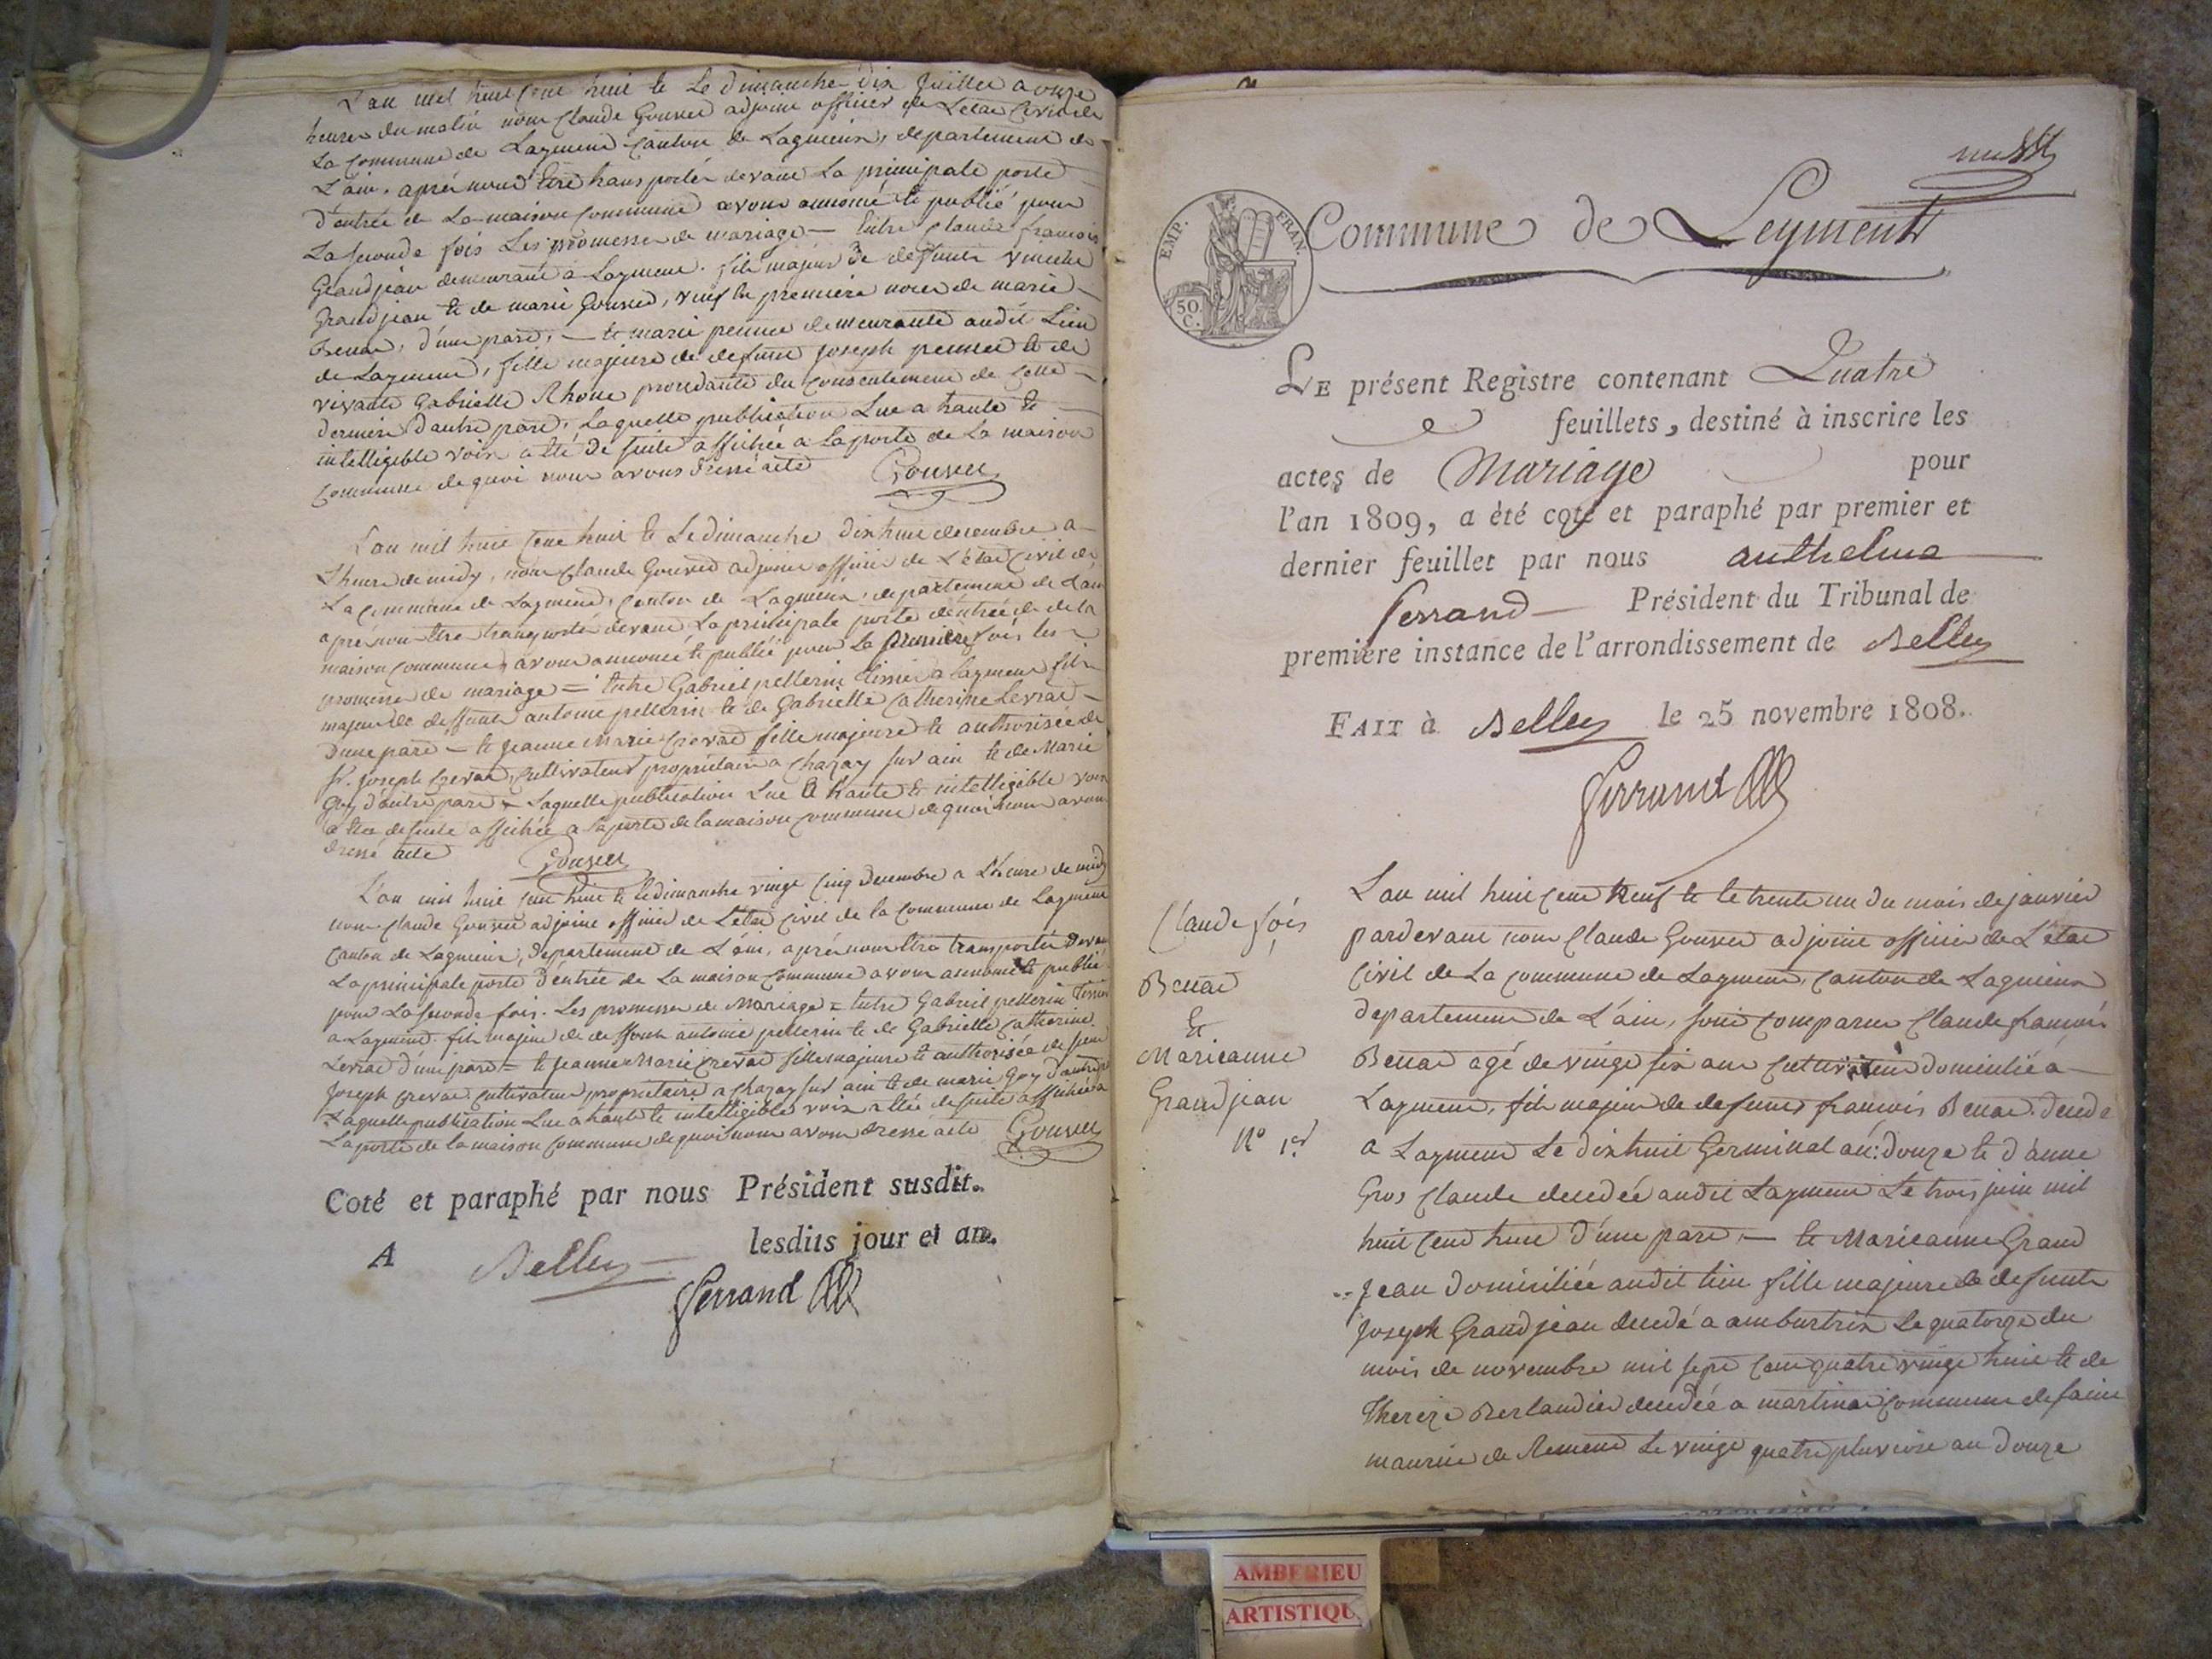 L'an mil huit cent huit et Le dimanche dix juillet a onze
heures du matin nous Claude Gouvet adjoint officier de L'état Civil de
La commune de Layment Canton de Lagnieux, departement de
L'ain. aprés nous être transportés devant La principale porte
d'entrée de La maison Commune avons annoncé et publié pour
La seconde fois Les promesses de mariage — Entre Claude françois
Grandjean demeurant a Layment. fils majeur de defunts vincent
Grandjean et de marie Gouvet, veuf en premiere noces de marie
Benat, d'une part; — et marie peunet demeurante audit Lieu
de Layment, fille majeure de defunt joseph peunet et de
vivante Gabrielle Rhone procedante du consentement de Cette
derniere d'autre part, Laquelle publication Lue a haute et
intelligible voix a été de suite affichée a La porte de La maison
Commune de quoi nous avons dressé acte Gouvet
L'an mil huit cent huit et Le dimanche dix huit decembre a
L'heure de midy, nous Claude Gouvet adjoint officier de L'état Civil de
La Commune de Layment, Canton de Lagnieux, departement de L'ain
aprés nous être transporté devant La principale porte d'entrée de la
maison commune, avons annoncé et publié pour La premiere fois les
promesses de mariage = Entre Gabriel pellerin tissier a Layment fils
majeur de deffunts antoine pellerin et de Gabrielle Catherine Levrat
d'une part — et jeanne Marie Crevat fille majeure et authorisée de
Sr. joseph Crevat, Cultivateur proprietaire a Chazay sur ain et de Marie
Guy d'autre part = Laquelle publication Lue a haute et intelligible voix
a été de suite affichée a La porte de la maison commune de quoi nous avons
dressé acte Gouvet
L'an mil huit cent huit et Le dimanche vingt cinq decembre a L'heure de midy
nous Claude Gouvet adjoint officier de L'état Civil de la Commune de Layment
Canton de Lagnieux, departement de L'ain, aprés nous être transporté devant
La principale porte d'entrée de La maison commune avons annoncé et publié
pour La seconde fois. Les promesses de Mariage = Entre Gabriel pellerin tissier
a Layment. fils majeur de deffunts antoine pellerin et de Gabrielle Catherine
Levrat d'une part = et jeanne Marie Crevat fille majeure et authorisée de sieur
joseph Crevat Cultivateur proprietaire a Chazay sur ain et de marie Guy d'autre part
Laquelle publication Lue a haute et intelligible voix a été de suite affichée a
La porte de la maison Commune de quoi nous avons dressé acte Gouvet
Coté et paraphé par nous Président susdit.
A Belley lesdits jour et an.
Ferrand
Commune de Leyment
EMP. FRAN.
50. C.
LE présent Registre contenant Quatre
feuillets, destiné à inscrire les
actes de Mariage pour
l'an 1809, a été coté et paraphé par premier et
dernier feuillet par nous anthelme
ferrand Président du Tribunal de
première instance de l'arrondissement de Belley
FAIT à Belley le 25 novembre 1808.
Ferrand
Claude fois
Benat
Et
Marieanne
Grandjean
N° 1er
L'an mil huit cent neuf et le trente un du mois de janvier
pardevant nous Claude Gouvet adjoint officier de L'état
Civil de La Commune de Layment, Canton de Lagnieux
departement de L'ain, sont comparus Claude françois
Benat agé de vingt six ans Cultivateur domicilié a
Layment, fils majeur de defunts françois Benat. decedé
a Layment Le dix huit Germinal an: douze et d'anne
Gros Claude decedée audit Layment Le trois juin mil
huit cent huit d'une part, — et Marieanne Grand
jean domiciliée audit lieu fille majeure de defunts
joseph Grandjean decedé a ambutrix Le quatorze du
mois de novembre mil sept cent quatre vingt huit et de
Thereze Berlandier decedée a martinaz commune de saint
maurice de Rement Le vingt quatre pluviose an douze
AMBERIEU
ARTISTIQU